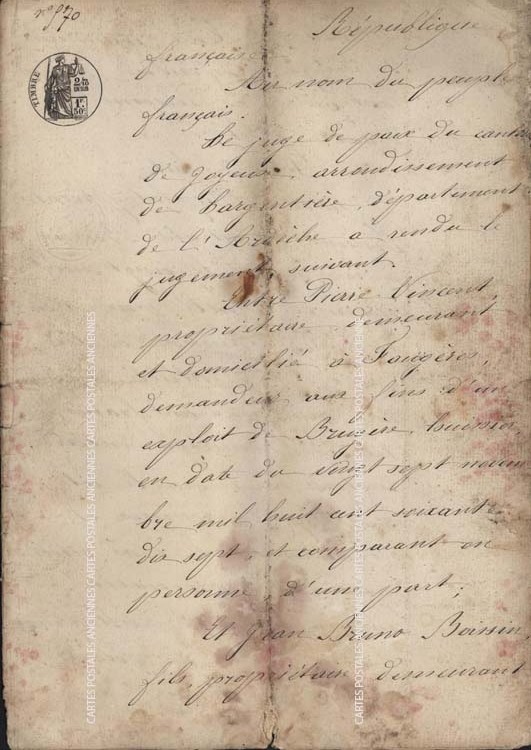 République
française
Au nom du peuple
français.
Le juge de paix du canton
de Joyeuse, arrondissement
de Largentière, département
de l'Ardèche a rendu le
jugement suivant.
Entre Pierre Vincent,
propriétaire demeurant
et domicilié à Faugères,
demandeur aux fins d'un
exploit de Brugère, huissier,
en date du vingt sept novem
bre mil huit cent soixante
dix sept, et comparant en
personne, d'une part;
Et Jean Bruno Boissin
fils, propriétaire demeurant
TIMBRE
CARTES POSTALES ANCIENNES CARTES POSTALES ANCIENNES CARTES POSTALES ANCIENNES
CARTES POSTALES ANCIENNES CARTES POSTALES ANCIENNES CARTES POSTALES ANCIENNES